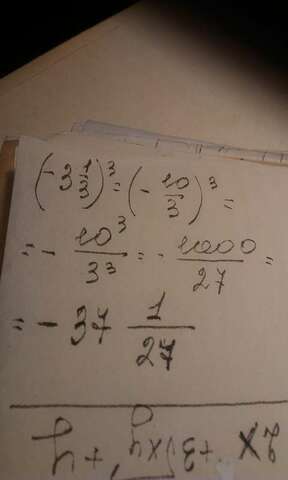 (-3 1/3)^3 = (-10/3)^3 =
= - 10^3/3^3 = - 1000/27 =
= - 37 1/27